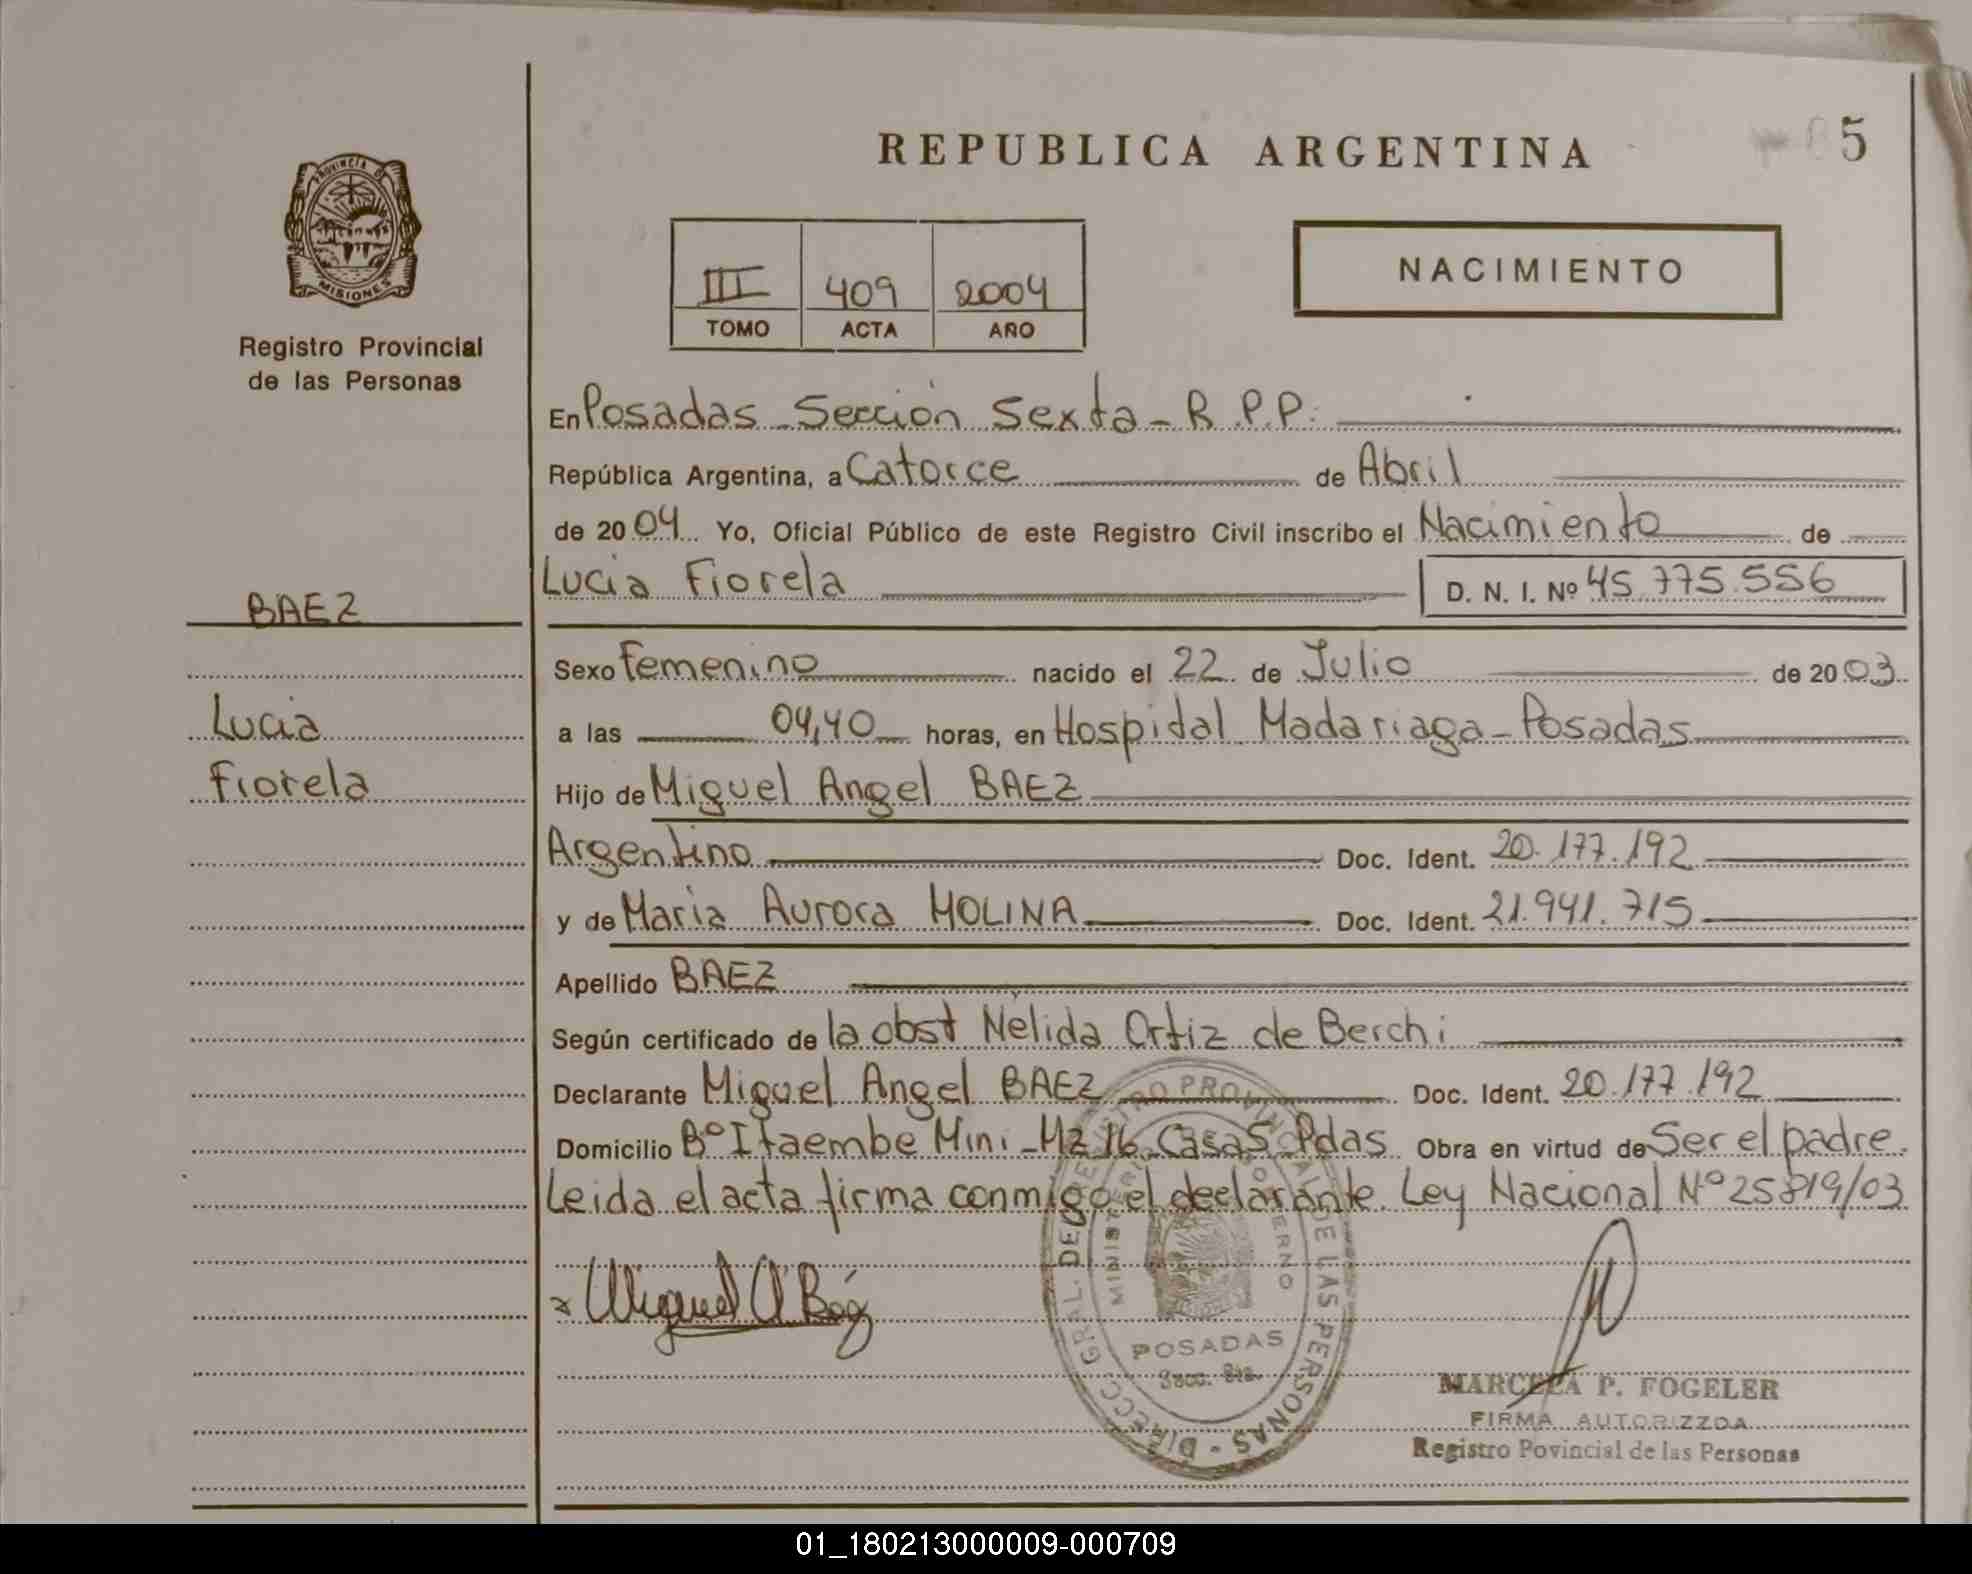 REPUBLICA ARGENTINA
5
PROVINCIA DE
MISIONES
Registro Provincial
de las Personas
III 409 2004
TOMO ACTA AÑO
NACIMIENTO
En Posadas - Sección Sexta - R.P.P.
República Argentina, a Catorce de Abril
de 2004 Yo, Oficial Público de este Registro Civil inscribo el Nacimiento de
Lucia Fiorela D. N. I. Nº 45.775.556
BAEZ
Lucia
Fiorela
Sexo Femenino nacido el 22 de Julio de 2003
a las 04,40 horas, en Hospidal Madariaga - Posadas
Hijo de Miguel Angel BAEZ
Argentino Doc. Ident. 20.177.192
y de Maria Aurora MOLINA Doc. Ident. 21.941.715
Apellido BAEZ
Según certificado de la obst Nelida Ortiz de Berchi
Declarante Miguel Angel BAEZ Doc. Ident. 20.177.192
Domicilio Bº Itaembe Mini - Mz 16 Casas Pdas Obra en virtud de Ser el padre.
Leida el acta firma conmigo el declarante. Ley Nacional Nº 25819/03
x Miguel A Baez
DIRECC. GRAL. DE REGISTRO PROVINCIAL DE LAS PERSONAS
MINISTERIO GOBIERNO
POSADAS
Secc. 6ta.
MARCELA P. FOGELER
FIRMA AUTORIZZDA
Registro Povincial de las Personas
01_180213000009-000709